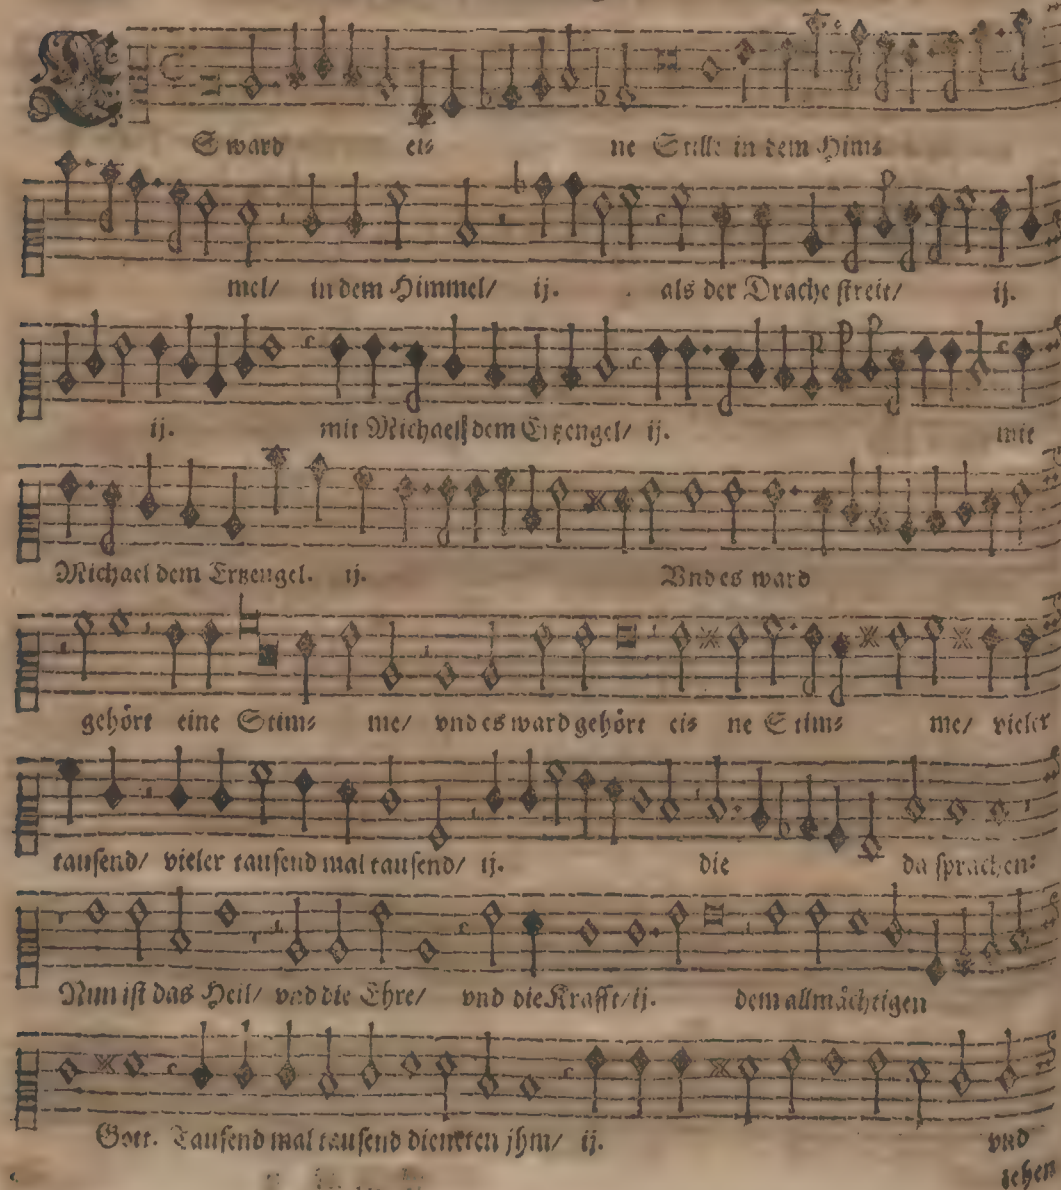 ES ward ei⸗ ne Stille in dem Him⸗
mel/ in dem Himmel/ ij. als der Drache streit/ ij.
ij. mit Michael dem Ertzengel/ ij. mit
Michael dem Ertzengel. ij. Vnd es ward
gehört eine Stim⸗ me/ vnd es ward gehört ei⸗ ne Stim⸗ me/ vieler
tausend/ vieler tausend mal tausend/ ij. die da sprachen:
Nun ist das Heil/ vnd die Ehre/ vnd die Krafft/ ij. dem allmåchtigen
Gott. Tausend mal tausend dieneten jhm/ ij. vnd
zehen